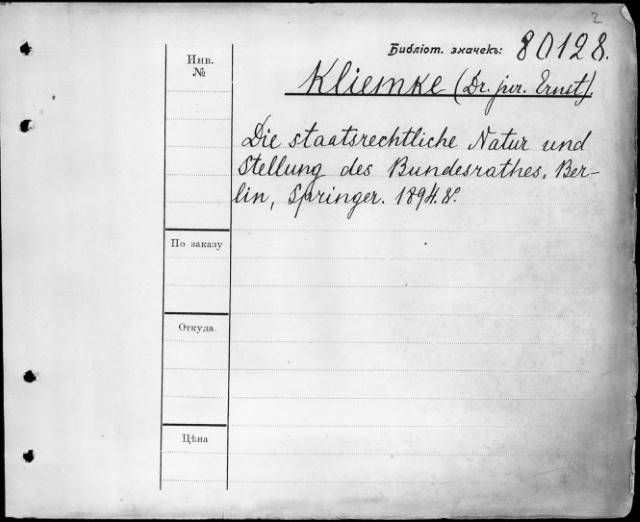 2
Библіот. значекъ: 80128.
Инв. №
Kliemke (Dr. jur. Ernst).
Die staatsrechtliche Natur und
Stellung des Bundesrathes. Ber-
lin, Springer. 1894. 8º
По заказу
Откуда
Цѣна